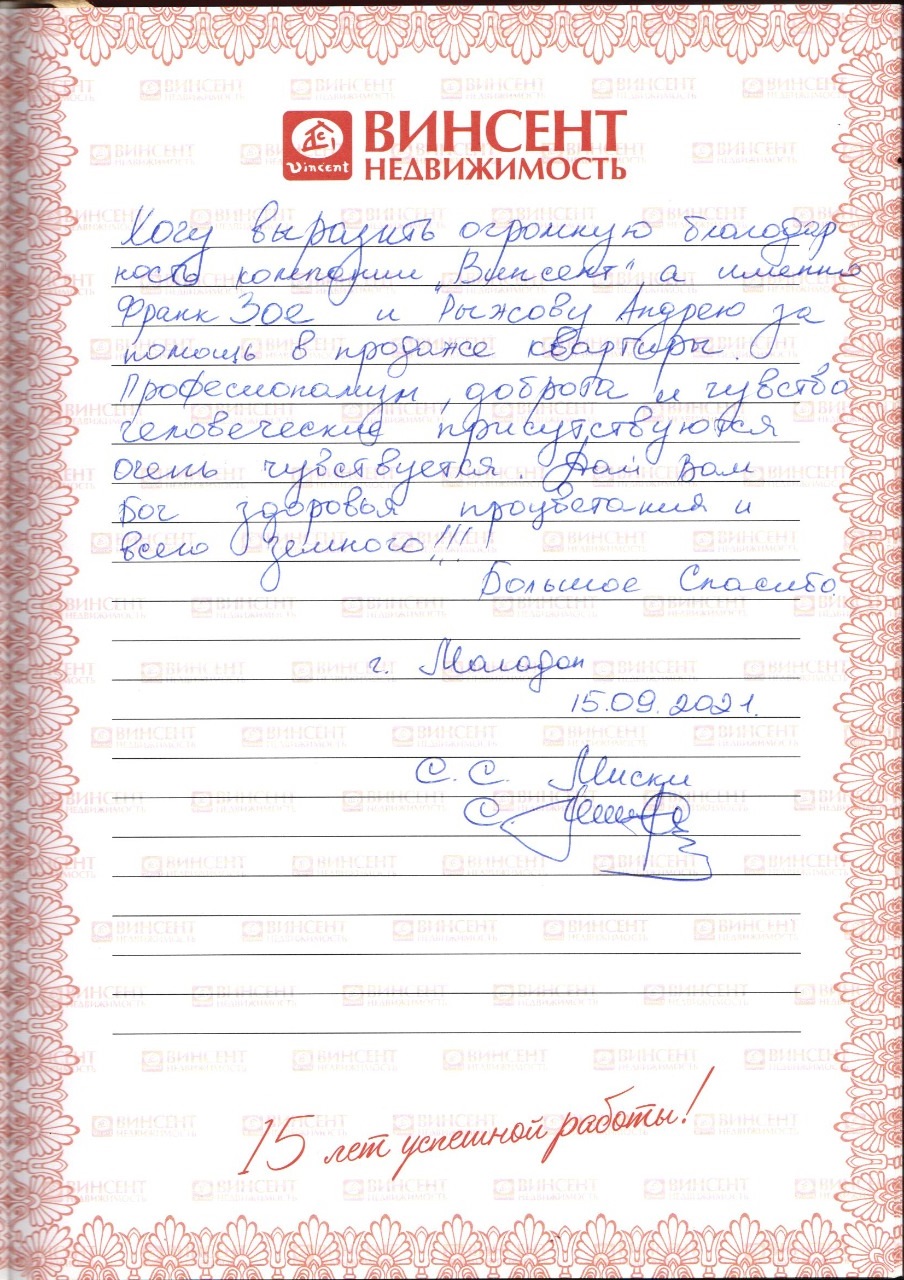 Vincent
ВИНСЕНТ
НЕДВИЖИМОСТЬ
Хочу выразить огромную благодар
ность компании „Винсент" а именно
Франк Зое и Рыжову Андрею за
помощь в продаже квартиры.
Професионализм, доброта и чувства
человеческие присутствуются
очень чувствуется. Дай Вам
Бог здоровья процветания и
всего земного!!!
Большое Спасибо
г. Магадан
15.09.2021.
С. С.
15 лет успешной работы!